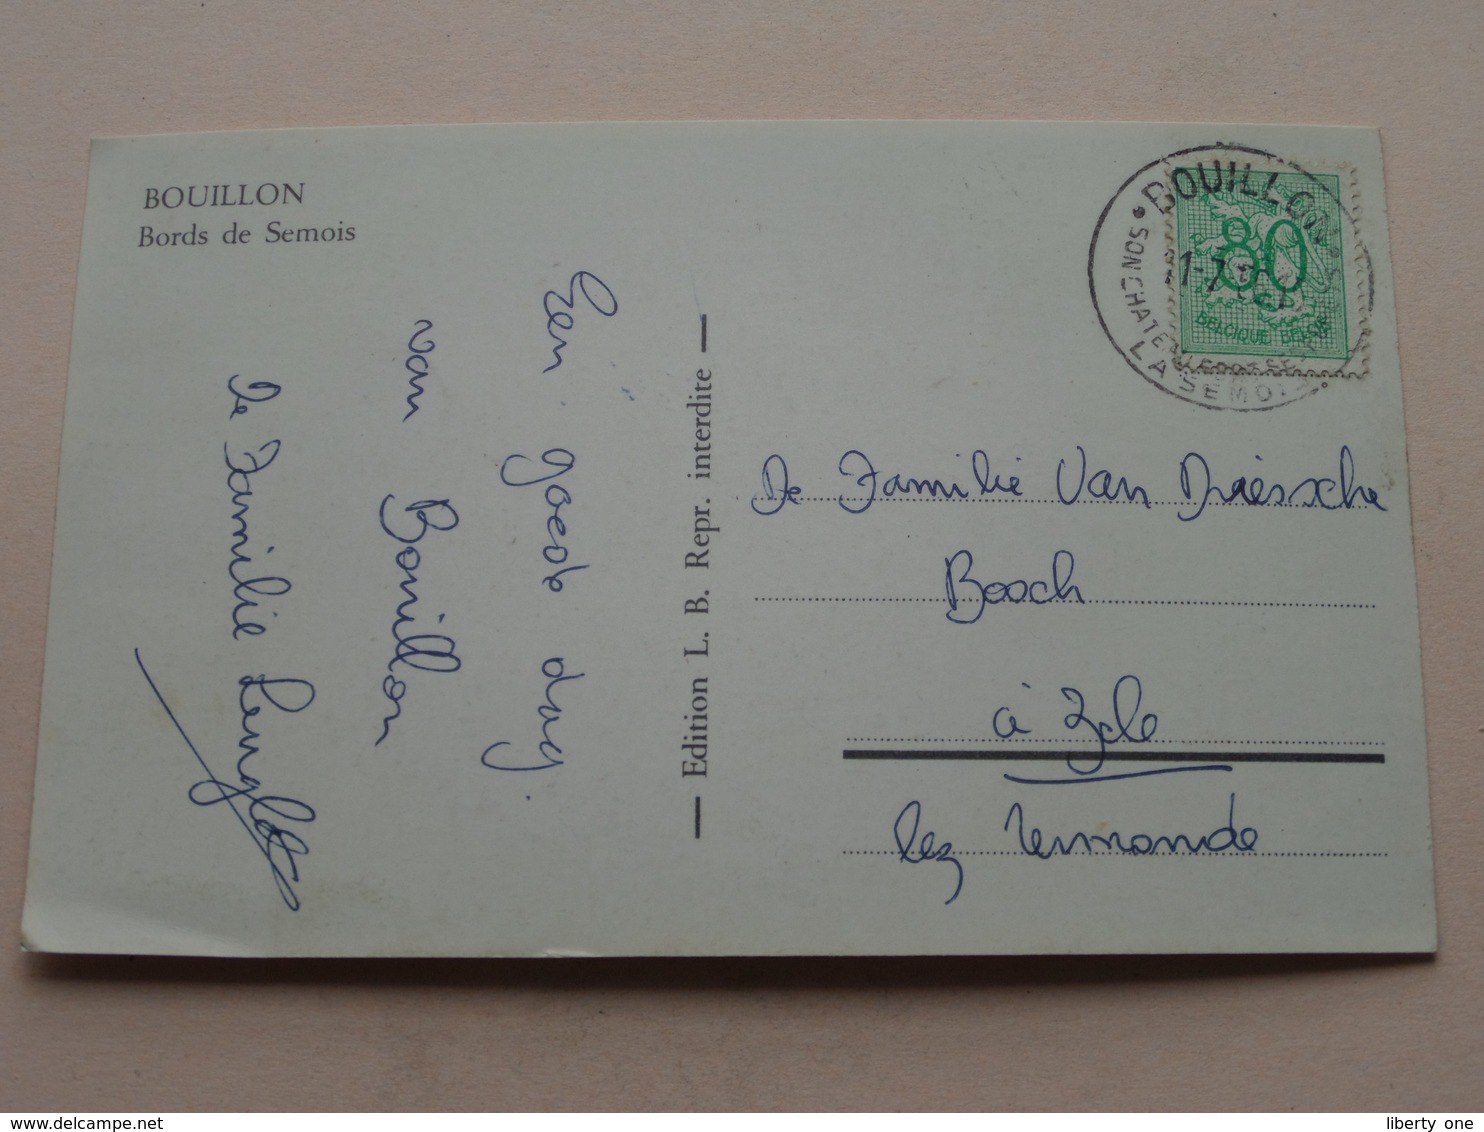 BOUILLON
Bords de Semois
Een goede dag
van Bouillon
De Familie Lenglet
— Edition L. B. Repr. interdite —
BOUILLON
SON CHATEAU
LA SEMOIS
1-7
80
BELGIQUE BELGIE
De Familie Van Driessche
Bosch
à Zele
lez Termonde
liberty one